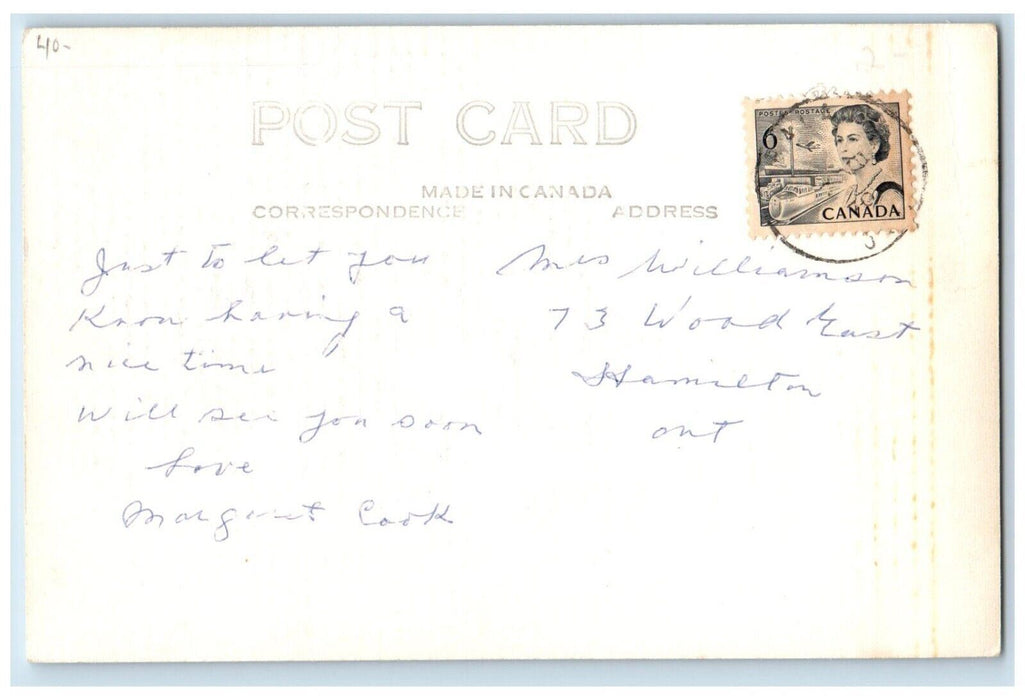 40-
2-
POST CARD
POSTES POSTAGE
6
CANADA
MADE IN CANADA
CORRESPONDENCE ADDRESS
Just to let you
Know having a
nice time
Will see you soon
Love
Margaret Cook
Mrs Williamson
73 Wood East
Hamilton
ont